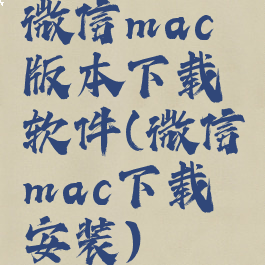 微信mac
版本下载
软件(微信
mac下载
安装)